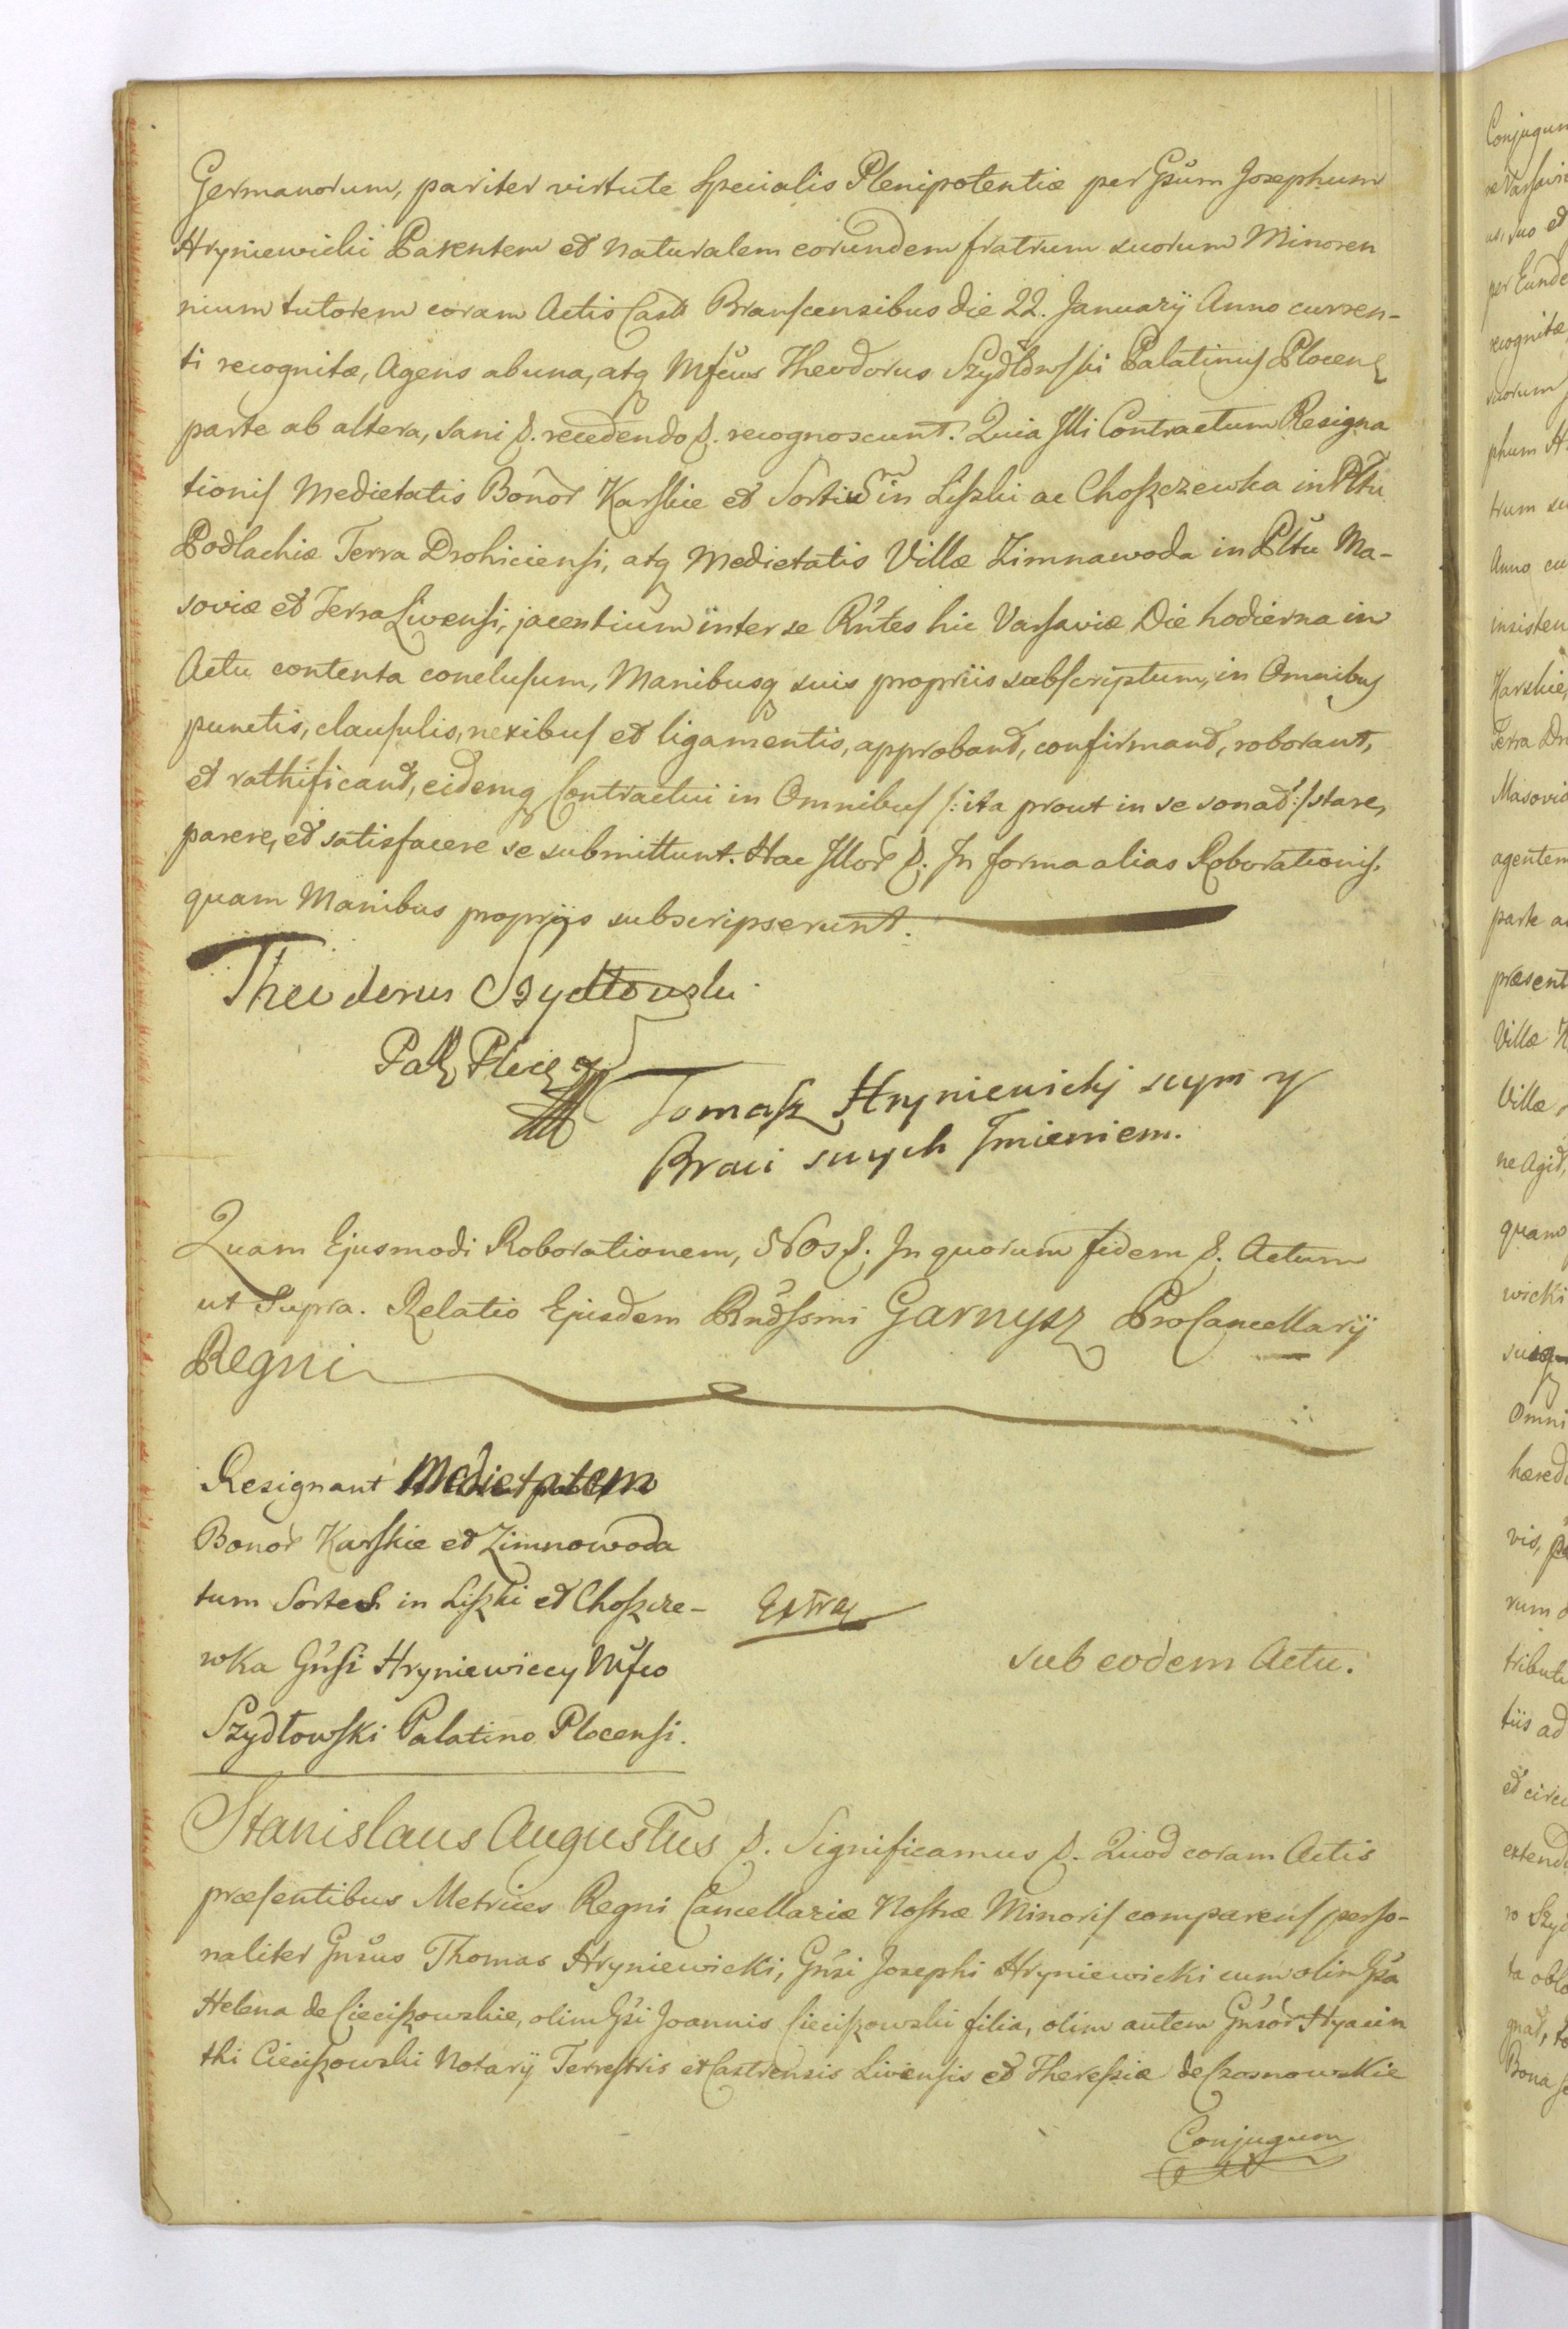 Germanorum, pariter virtute specialis Plenipotentiæ per Gsum Josephum
Hryniewicki Parentem et naturalem eorundem fratrum suorum Minoren
nium tutorem coram Actis Cast Branscensibus die 22. Januarij Anno curren-
ti recognitæ, Agens ab una, atq Mfcus Theodorus Szydłowski Palatinus Plocen
parte ab altera, sani &. recedendo &. recognoscunt. Quia Illi Contractum Resigna
tionis Medietatis Bonor Karskie et Sortium in Liszki ac Choszczewka in Pltu
Podlachiæ Terra Drohiciensi, atq Medietatis Villæ Zimnawoda in Pltu Ma-
soviæ et Terra Livensi, jacentium inter se Rntes hic Varsaviæ Die hodierna in
Actu contenta conclusum, Manibusq suis propriis subscriptum, in Omnibus
punctis, clausulis, nexibus et ligamentis, approband, confirmand, roborant,
et rathificant, eidemq Contractui in Omnibus /: ita prout in se sonat :/ stare,
parere, et satisfacere se submittunt. Hac Illor &. In forma alias Roborationis.
quam Manibus propriis subscripserunt.
Theodorus Szydłowski
Pal Ploc
Tomasz Hryniewickj swym y
Braci swych Jmieniem.
Quam Ejusmodi Roborationem, Nos &. In quorum fidem &. Actum
ut Supra. Relatio Ejusdem Rndssmi Garnysz ProCancellarij
Regni
Resignant Medietatem
Bonor Karskie et Zimnowoda
tum Sortes in Liszki et Choszcze-
wka Gnsi Hryniewiccy Mfco
Szydłowski Palatino Plocensi.
Extrax
sub eodem Actu.
Stanislaus Augustus &. Significamus &. Quod coram Actis
præsentibus Metrices Regni Cancellariæ Nostræ Minoris comparens perso-
naliter Gnsus Thomas Hryniewicki, Gnsi Josephi Hryniewicki cum olim Gsa
Helena de Cieciszowskie, olim Gsi Joannis Cieciszowski filia, olim autem Gnsor Hyacin
thi Cieciszowski Notarij Terrestris et Castrensis Livensis et Theresiæ de Czosnowskie
Conjugum